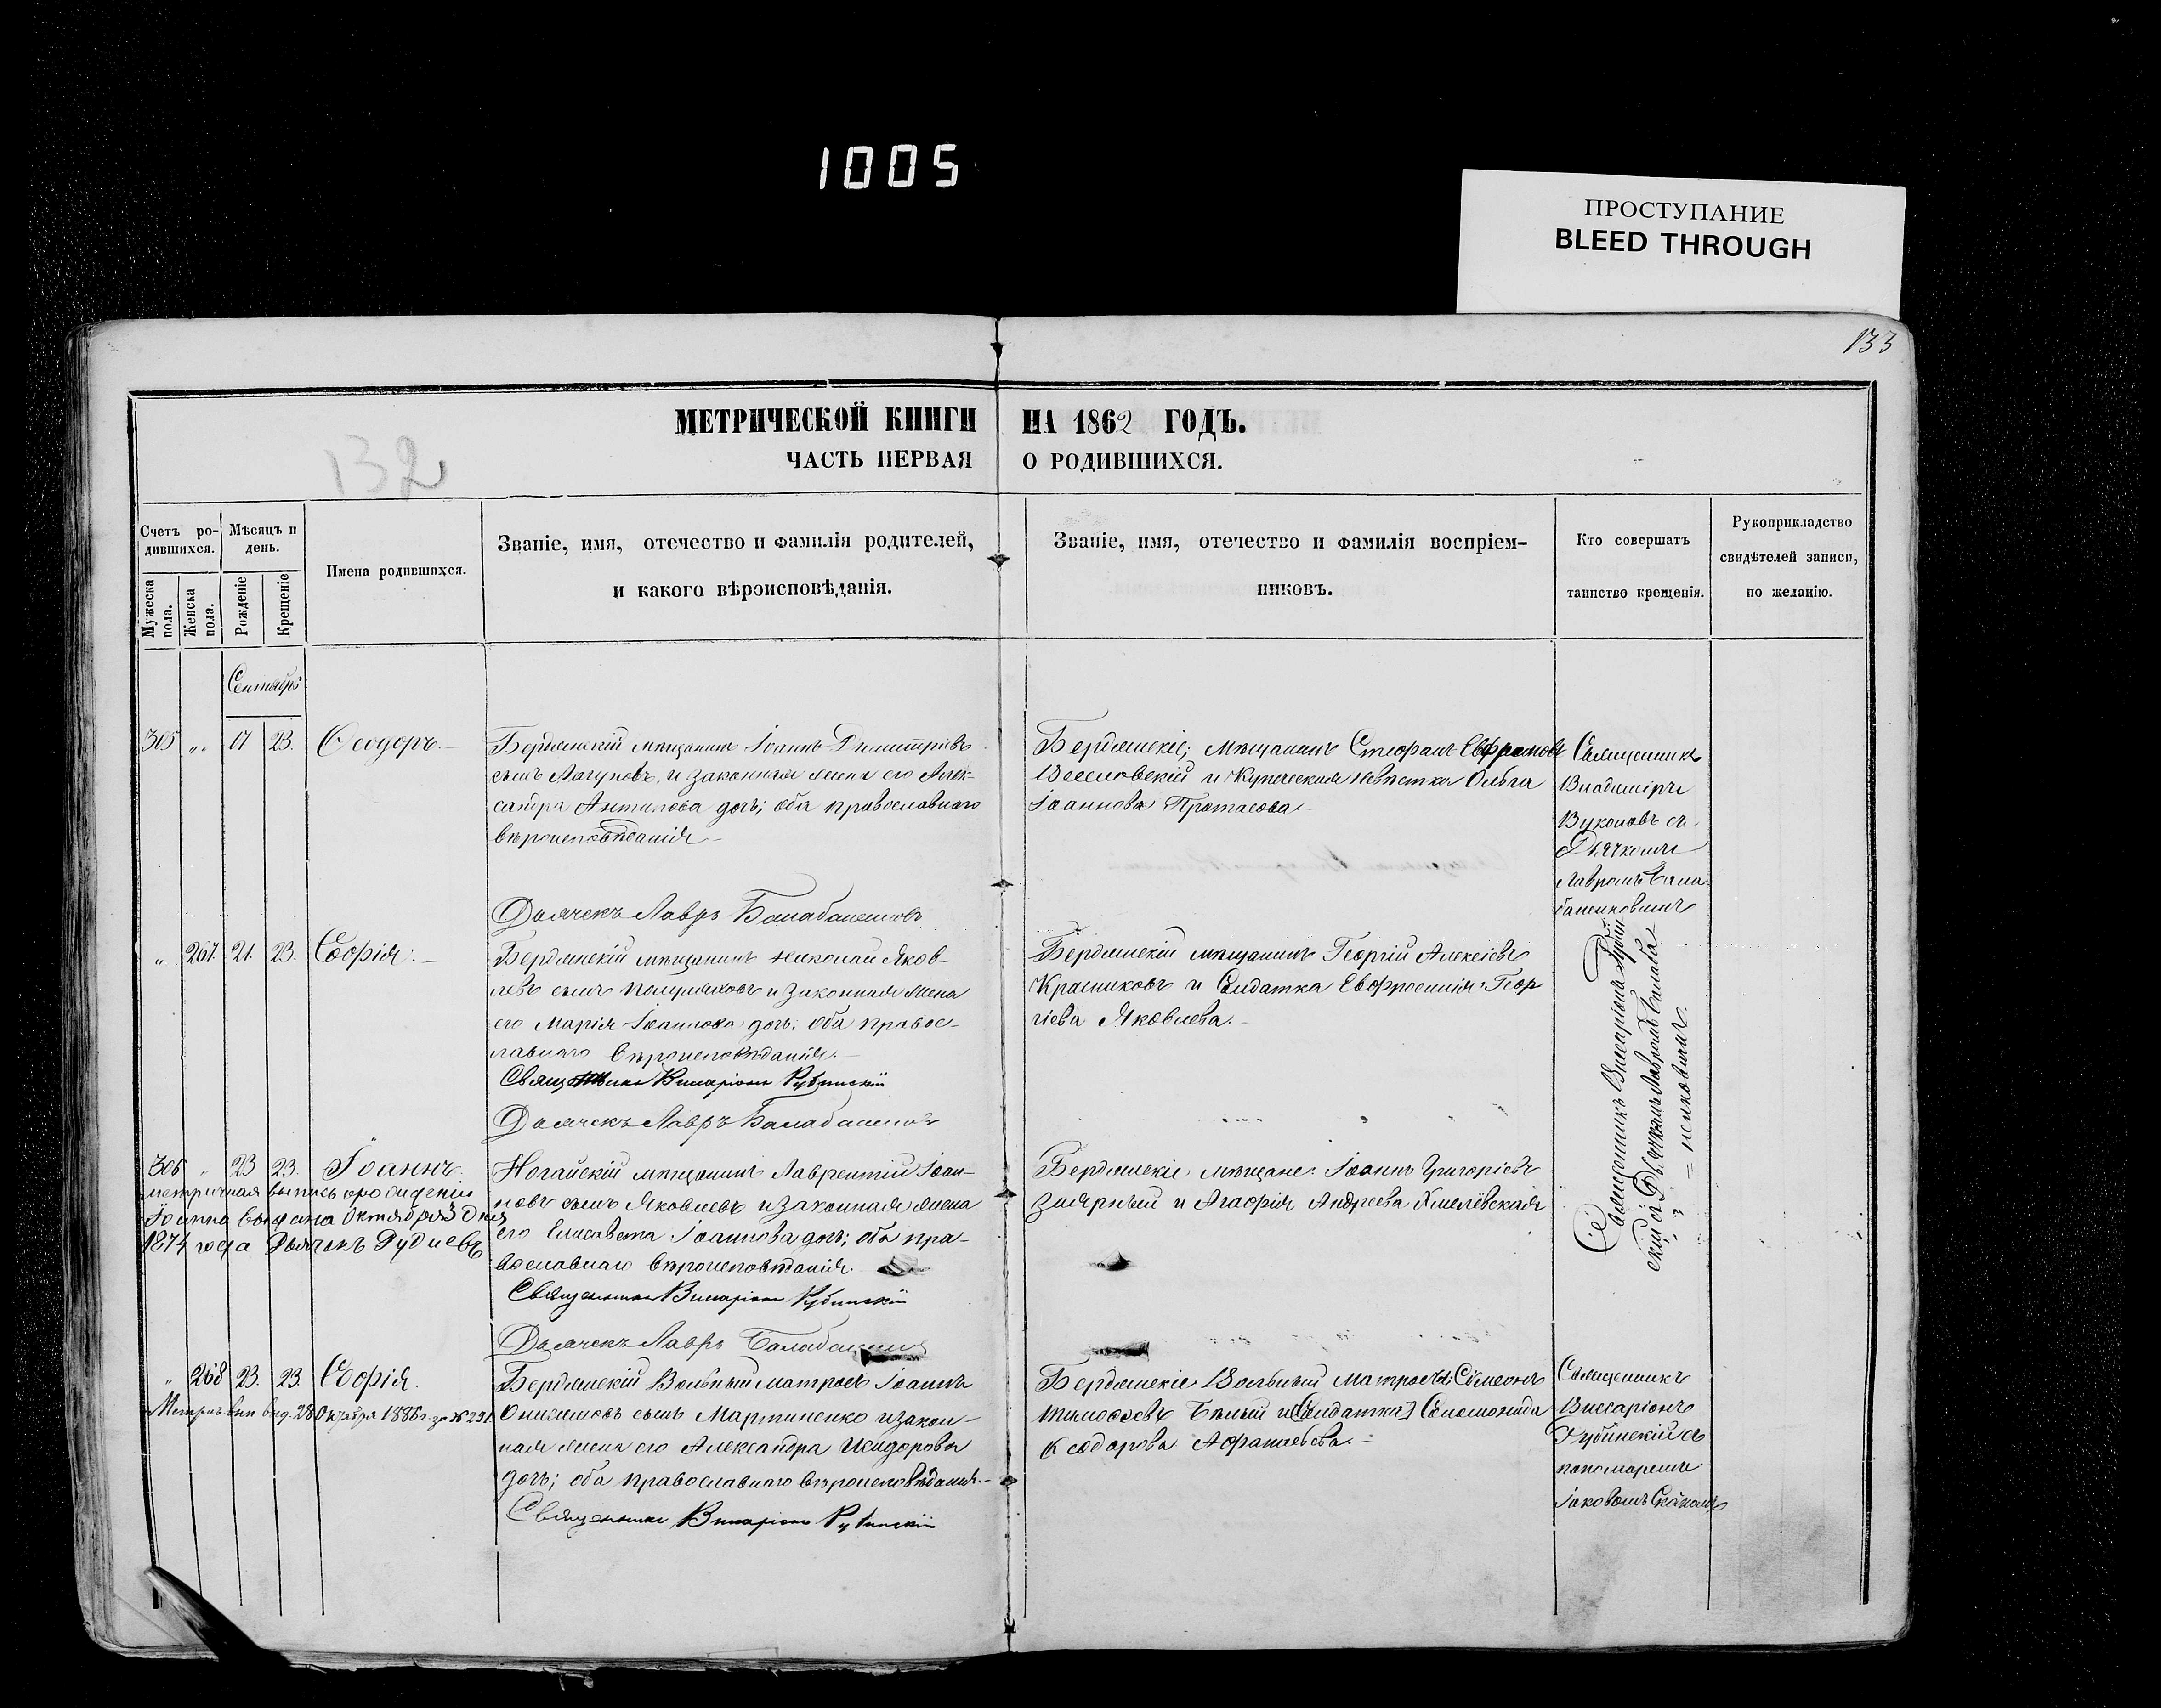 1005
ПРОСТУПАНИЕ
BLEED THROUGH
133
132
МЕТРИЧЕСКОЙ КНИГИ НА 1862 ГОДЪ.
ЧАСТЬ ПЕРВАЯ О РОДИВШИХСЯ.
Счетъ ро-
дившихся.
Мужеска пола.
Женска пола.
Мѣсяцъ и
день.
Рожденіе
Крещеніе
Имена родившихся.
Званіе, имя, отечество и фамилія родителей,
и какого вѣроисповѣданія.
Званіе, имя, отечество и фамилія воспріем-
никовъ.
Кто совершатъ
таинство крещенія.
Рукоприкладство
свидѣтелей записи,
по желанію.
Сентябрь
305 „ 17 23. Ѳеодоръ.
Бердянскій мѣщанинъ Іоаннъ Димитріевъ
сынъ Лагуновъ, и законная жена его Алек-
сандра Антипова дочь; оба православнаго
вѣроисповѣданія
Дьячекъ Лавръ
Бердянскіе; мѣщанинъ Стефанъ
Веселовскій и Купеческая невѣстка Ольга
Іоаннова Протасова
Священникъ
Владиміръ
Вуковъ съ
Дьячкомъ
Лавромъ Бала-
баненковымъ
„ 267. 21. 23. Софія.
Бердянскій мѣщанинъ Николай Яков-
левъ сынъ и законная жена
его Марія Іоаннова дочь; оба правос-
лавнаго вѣроисповѣданія.
Священникъ Виссаріонъ Рубинскій
Дьячекъ Лавръ
Бердянскій мѣщанинъ Георгій Алексіевъ
Красниковъ и Солдатка Евфросинія Геор
гіева Яковлева.
Священникъ Виссаріонъ Рубин
скій съ Дьячкомъ Лавромъ Балаба
= ненковымъ.
306 „ 23 23. Іоаннъ
метричная выпись о рожденіи
Іоанна выдана Октября 3 дня
1874 года Дьячекъ Рудневъ
Ногайскій мѣщанинъ Лаврентій Іоан-
новъ сынъ Яковлевъ и законная жена
его Елисавета Іоаннова дочь; оба пра-
вославнаго вѣроисповѣданія.
Священникъ Виссаріонъ Рубинскій
Дьячекъ Лавръ
Бердянскіе мѣщане: Іоаннъ Григоріевъ
и Агафія Андреева Хмелевская
„ 268 23. 23. Софія.
Метрич. вып выд. 28 Октября 1886 г. за № 291
Бердянскій Вольный матросъ Іоаннъ
Онисимовъ сынъ Мартиненко и закон-
ная жена его Александра Исидорова
дочь; оба православнаго вѣроисповѣданія.
Священникъ Виссаріонъ Рубинскій
Бердянскіе Вольный матросъ Симеонъ
Тимофѣевъ Бѣлый и Солдатка Соломонида
Ѳеодорова
Священникъ
Виссаріонъ
Рубинскій съ
пономаремъ
Іаковомъ